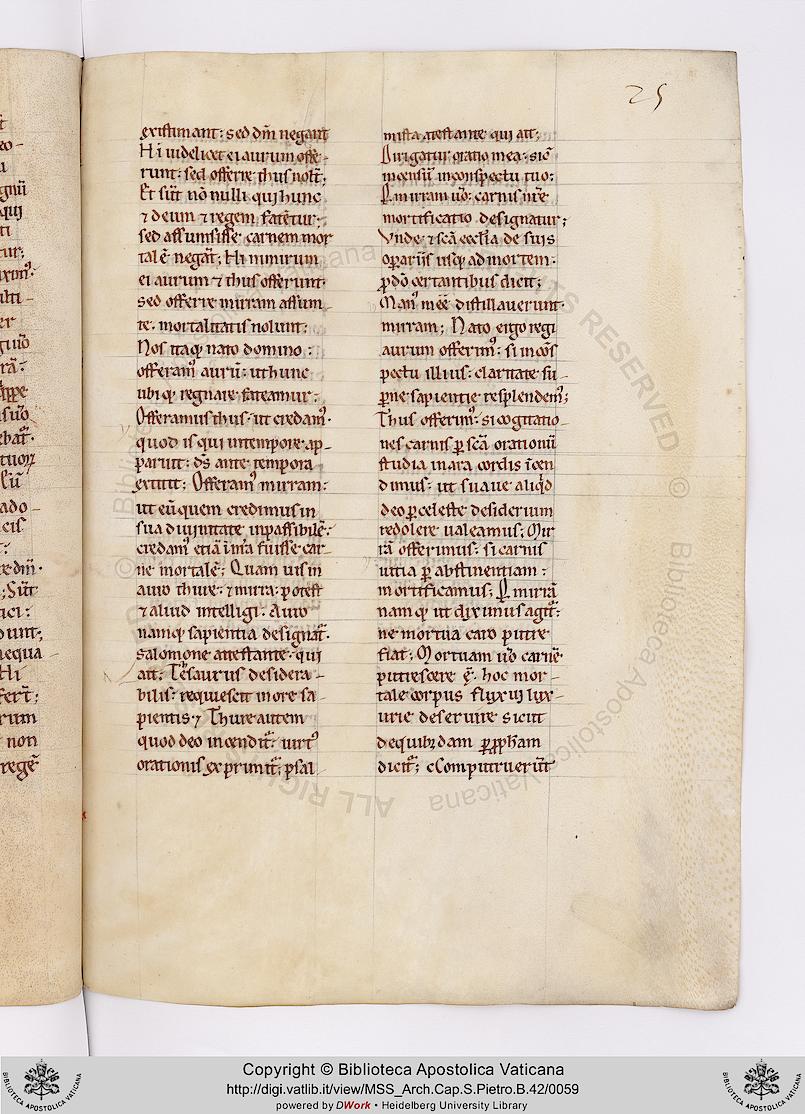 25
existimant: sed dm̄ negant
Hi videlicet ei aurum offe-
runt: sed offerre thus nolt̄;
Et sūt nō nulli qui hunc
⁊ deum ⁊ regem fatētur;
sed assumsisse carnem mor
talē negāt; Hi nimirum
ei aurum ⁊ thus offerunt:
sed offerre mirram assum
te. mortalitatis nolunt:
Nos itaq; nato domino:
offeram᾽ aurū: ut hunc
ubiq; regnare fateamur:
Offeramus thus. ut credam᾽.
quod is qui in tempore ap-
paruit: dš ante tempora
extitit; Offeram᾽ mirram:
ut eū quem credimus in
sua divinitate inpassibilē:
credam᾽ etiā in n̄ra fuisse car-
ne mortalē; Quamvis in
auro thure: ⁊ mirra: potest
⁊ aliud intelligi. Auro
namq; sapientia designat᷑.
salomone attestante. qui
ait: Tēsaurus desidera-
bilis: requiescit in ore sa-
pientis. ⁊ Thure autem
quod deo incendit᷑: virt᾽
orationis exprimit᷑: psal-
mista atestante qui ait:
Dirigatur oratio mea: sic᷑
incensū in conspectu tuo:
P̱ mirram ūo: carnis nr̄e
mortificatio designatur;
Vnde ⁊ scā ecclīa de suis
operariis usq; ad mortem.
p̱ dō certantibus dicit;
Man᾽ meē distillaverunt.
mirram; Nato ergo regi
aurum offerim᾽: si in cōs
pectu illius: claritate su-
p̱ne sapientie resplendem᾽;
Thus offerim᾽. si cogitatio-
nes carnis p̱ scā orationū
studia in ara cordis īcen
dimus: ut suave aliq̇d
deo p̱ celeste desiderium
redolere valeamus; Mir
rā offerimus: si carnis
vitia p̱ abstinentiam:
mortificamus; P̱ mirrā
namq; ut diximus agit᷑:
ne mortua caro putre
fiat; Mortuam ūo carnē
putrescere ē. hoc mor-
tale corpus fluxui lux-
urie deservire sicut
de quibꝫdam p̱ p̱pħam
dicit᷑; Computruerūt
Copyright © Biblioteca Apostolica Vaticana
http://digi.vatlib.it/view/MSS_Arch.Cap.S.Pietro.B.42/0059
powered by DWork • Heidelberg University Library